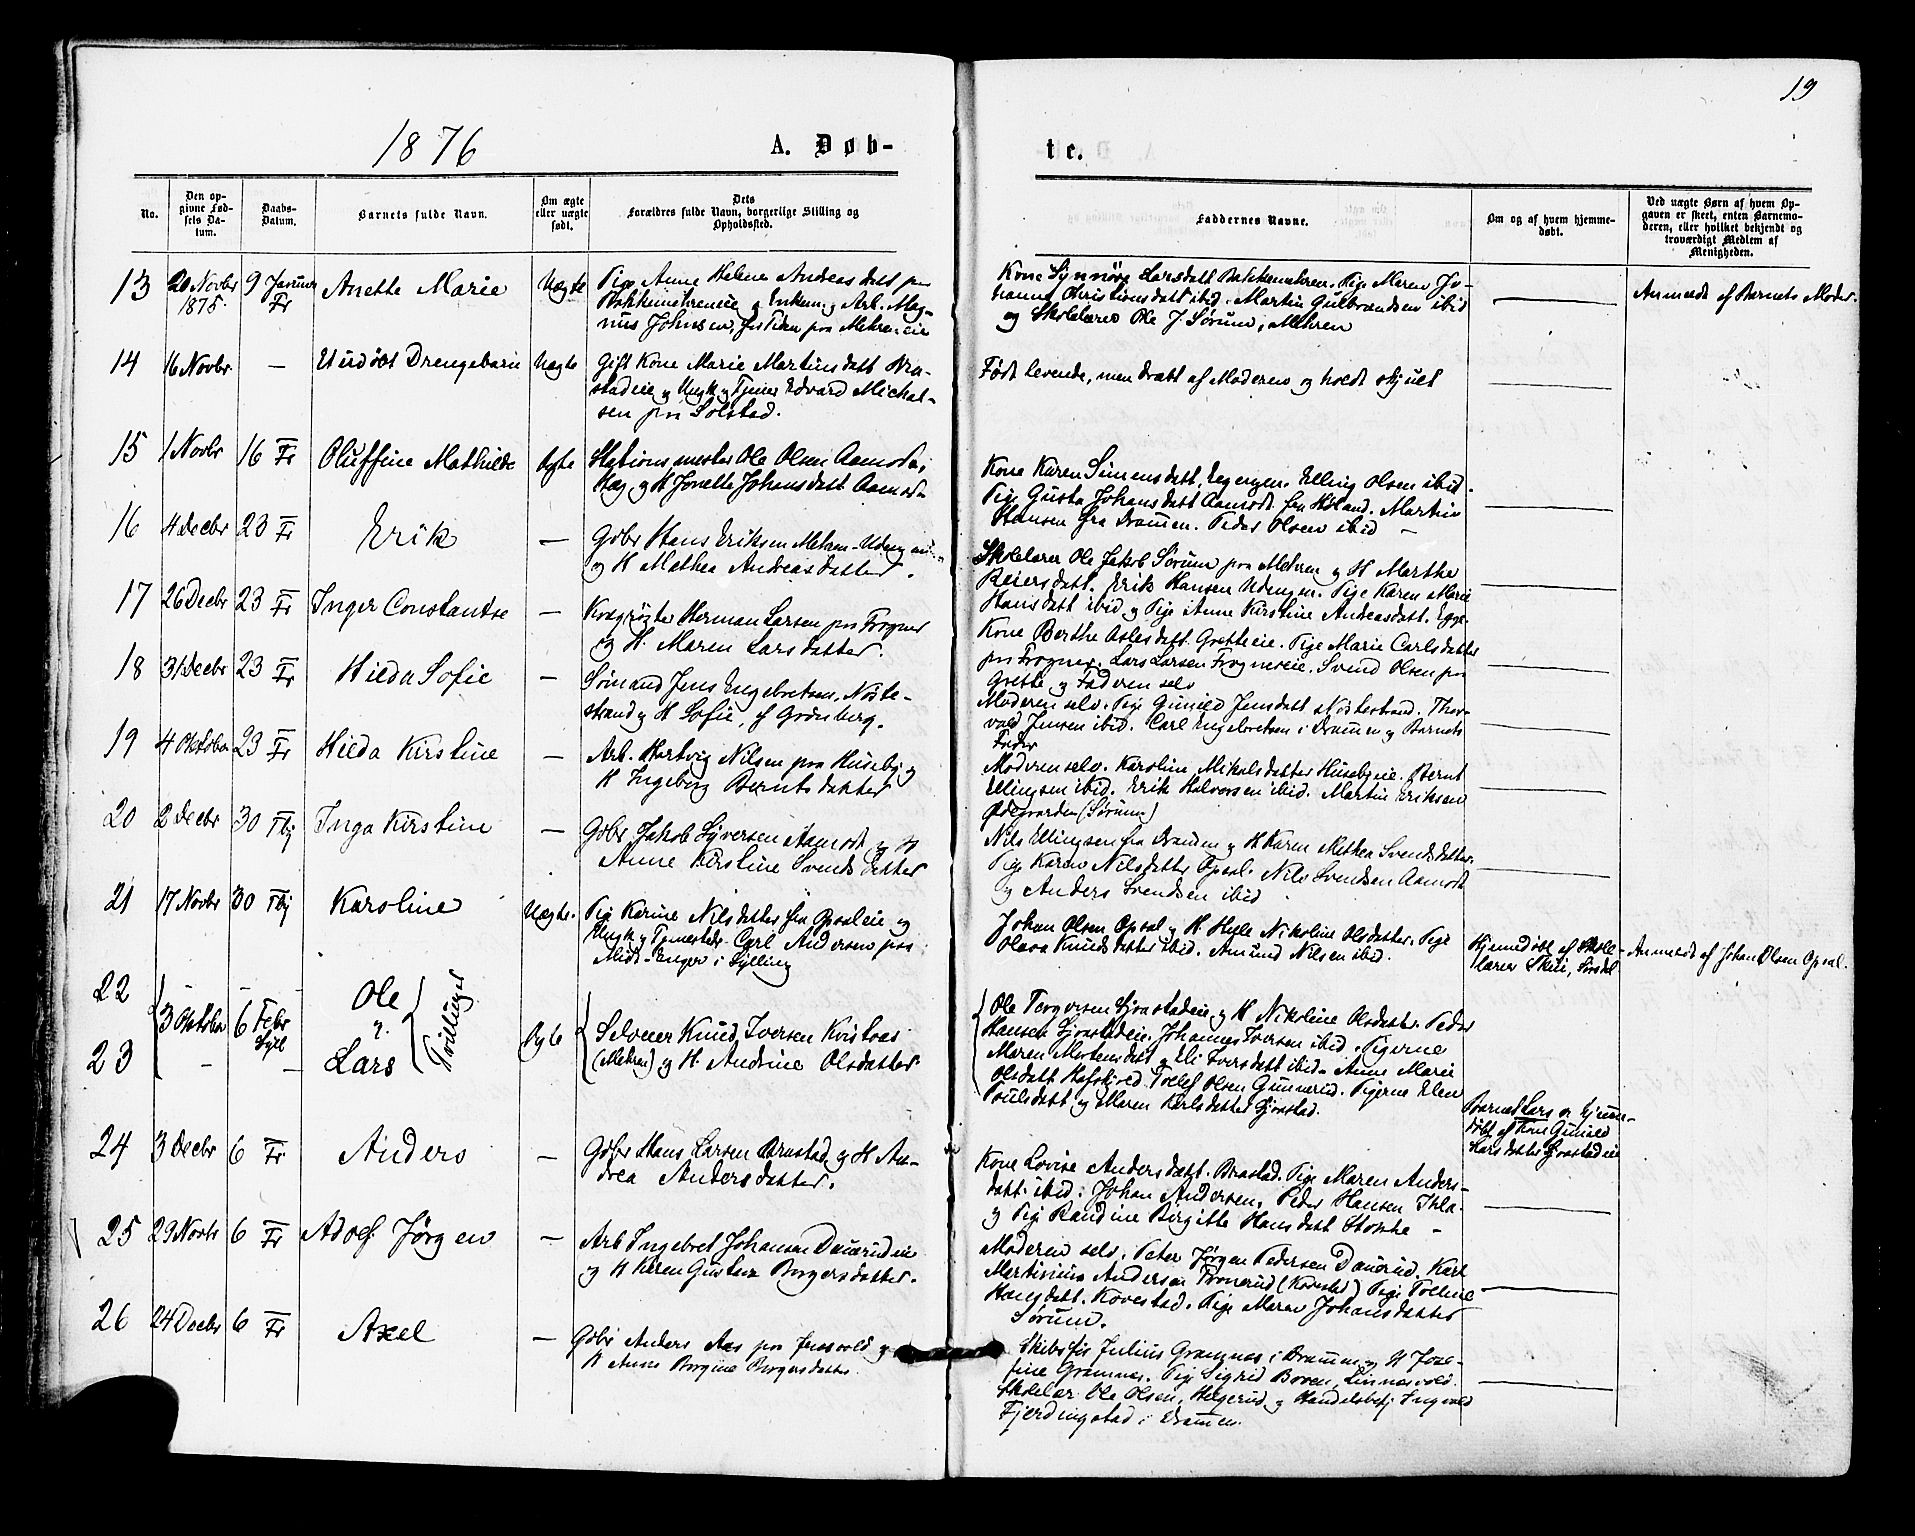 19
1876
A. Døb-
te.
No.
Den op-
givne Fød-
sels Da-
tum.
Daabs-
Datum.
Barnets fulde Navn.
Om ægte
eller uægte
født.
Dets
Forældres fulde Navn, borgerlige Stilling og
Opholdssted.
Faddernes Navne.
Om og af hvem hjemme-
døbt.
Ved uægte Børn af hvem Op-
gaven er skeet, enten Barnemo-
deren, eller hvilket bekjendt og
troværdigt Medlem af
Menigheden.
13
20 Novbr
1875.
9 Januar
Fr
Anette Marie
Uægte
Pige Anne Helene Andreasdatt paa
og Enkem. og Arb. Mag-
nus Johnsen, paa Mehreneie
Kone Synnöve Larsdatt Bakkemehren. Pige Maren Jo-
hanne Christiansdatt ibid. Martin Gulbrandsen ibid
og Skolelærer Ole J. Sørum, Mehren
Anmeldt af Barnets Moder.
14
16 Novbr.
—
Et udöbt Drengebarn
Uægte
Gift Kone Marie Martinsdatt Bra-
stadeie og Ungk. og Tjener Edvard Michel-
sen paa Solstad.
Født levende, men dræbt af Moderen og holdt skjult
15
1 Novbr
16 Fr
Oluffine Mathilde
Ægte
Stationsmester Ole Olsen Aamodt,
og H Jonette Johansdatt Aamodt
Kone Karen Simensdatt, Elling Olsen ibid.
Pige Gusta Johansdatt Aamodt fra Höland. Martin
Hansen fra Drammen. Peder Olsen ibid —
16
4 Decbr
23 Fr
Erik
—
Gdbr Hans Eriksen Mehren-Udengen
og H Mathea Andreasdatter.
Skolelærer Ole Jakob Sørum paa Mehren og H Marthe
Reiersdatt. Erik Hansen Udengen. Pige Karen Marie
Hansdatt ibid og Pige Anne Kirstine Andreasdatt. Egge.
17
26 Decbr
23 Fr
Inger Constantse
—
Kvægrögter Herman Larsen paa Frogner
og H. Maren Larsdatter.
Kone Berthe Aslesdatt. Gretteeie. Pige Marie Carlsdatter
paa Frogner. Lars Larsen Frognereie. Svend Olsen paa
Grette og Faderen selv
18
31 Decbr
23 Fr
Hilda Sofie
—
Sömand Jens Engebretsen, Nöste-
strand og H Sofie, f. Grönberg.
Moderen selv. Pige Gunild Jensdatt Nöstestrand. Thor-
vald Jensen ibid. Carl Engebretsen i Drammen og Barnets
Fader
19
4 Oktober
23 Fr
Hilda Kirstine
—
Arb. Hartvig Nilsen paa Huseby og
H Ingeborg Berntsdatter
Moderen selv. Karoline Mikalsdatter Husebyeie. Bernt
Ellingsen ibid. Erik Halvorsen ibid. Martin Eriksen
Ødegaarden (Sørum)
20
2 Decbr
30
Inga Kirstine
—
Gdbr Jakob Syversen Aamodt og H
Anne Kirstine Svendsdatter
Nils Ellingsen fra Drammen og H Karen Mathea Svendsdatter.
Pige Karen Nilsdatter Opsal. Nils Svendsen Aamodt
og Anders Svendsen ibid
21
17 Novbr
30
Karoline
Uægte.
Pige Karine Nilsdatter fra Opsaleie og
Ungk. og Carl Andersen paa
Midt-Enger i Sylling
Johan Olsen Opsal og H. Helle Nikoline Olsdatter. Pige
Olava Knudsdatter ibid. Amund Nilsen ibid.
Hjemmedöbt af Skole-
lærer
Anmeldt af Johan Olsen Opsal.
22
23
3 Oktober
6 Febr
Syll
Ole
og
Lars
Tvillinger
Ægte
Selveier Knud Iversen
(Mehren) og H. Andrine Olsdatter
Ole Torgersen Gjevstadeie og H Nikoline Olsdatter. Peder
Hansen Johannes Iversen ibid. Pigerne
Maren Mortensdatt og Eli Iversdatt ibid. Anne Marie
Olsdatt Hafskjold. Tollef Olsen Gunnerud. Pigerne Elen
Poulsdatt og Maren Karlsdatter Gjevstad.
Barnet Lars er hjemme-
döbt af Kone Gunild
Larsdatter
24
3 Decbr
6 Fr
Anders
—
Gdbr Hans Larsen Brastad og H An-
drea Andersdatter.
Kone Lovise Andersdatt. Brastad. Pige Maren Anders-
datt. ibid. Johan Andersen. Peder Hansen
og Pige Randine Birgitte Hansdatt —
25
29 Novbr
6 Fr
Adolf Jörgen
—
Arb Ingebret Johansen Dauerudeie
og H Karen Gustava Borgersdatter.
Moderen selv. Peter Jörgen Pedersen Dauerud. Karl
Martinius Andersen Tronerud (Kovestad) Pige Toline
Hansdatt. Kovestad. Pige Maren Johansdatter
Sørum.
26
24 Decbr
6 Fr
Axel
—
Gdbr Anders Aas paa og
H Anne Borgine Borgersdatter
Skibsfö Julius Gramnæs i Drammen og H Jose-
fine Gramnæs. Pige Sigrid Boren, Linnesvold.
Skolelær. Ole Olsen, Helgerud og Handelsbetj Ingvald
Fjerdingstad i Drammen.